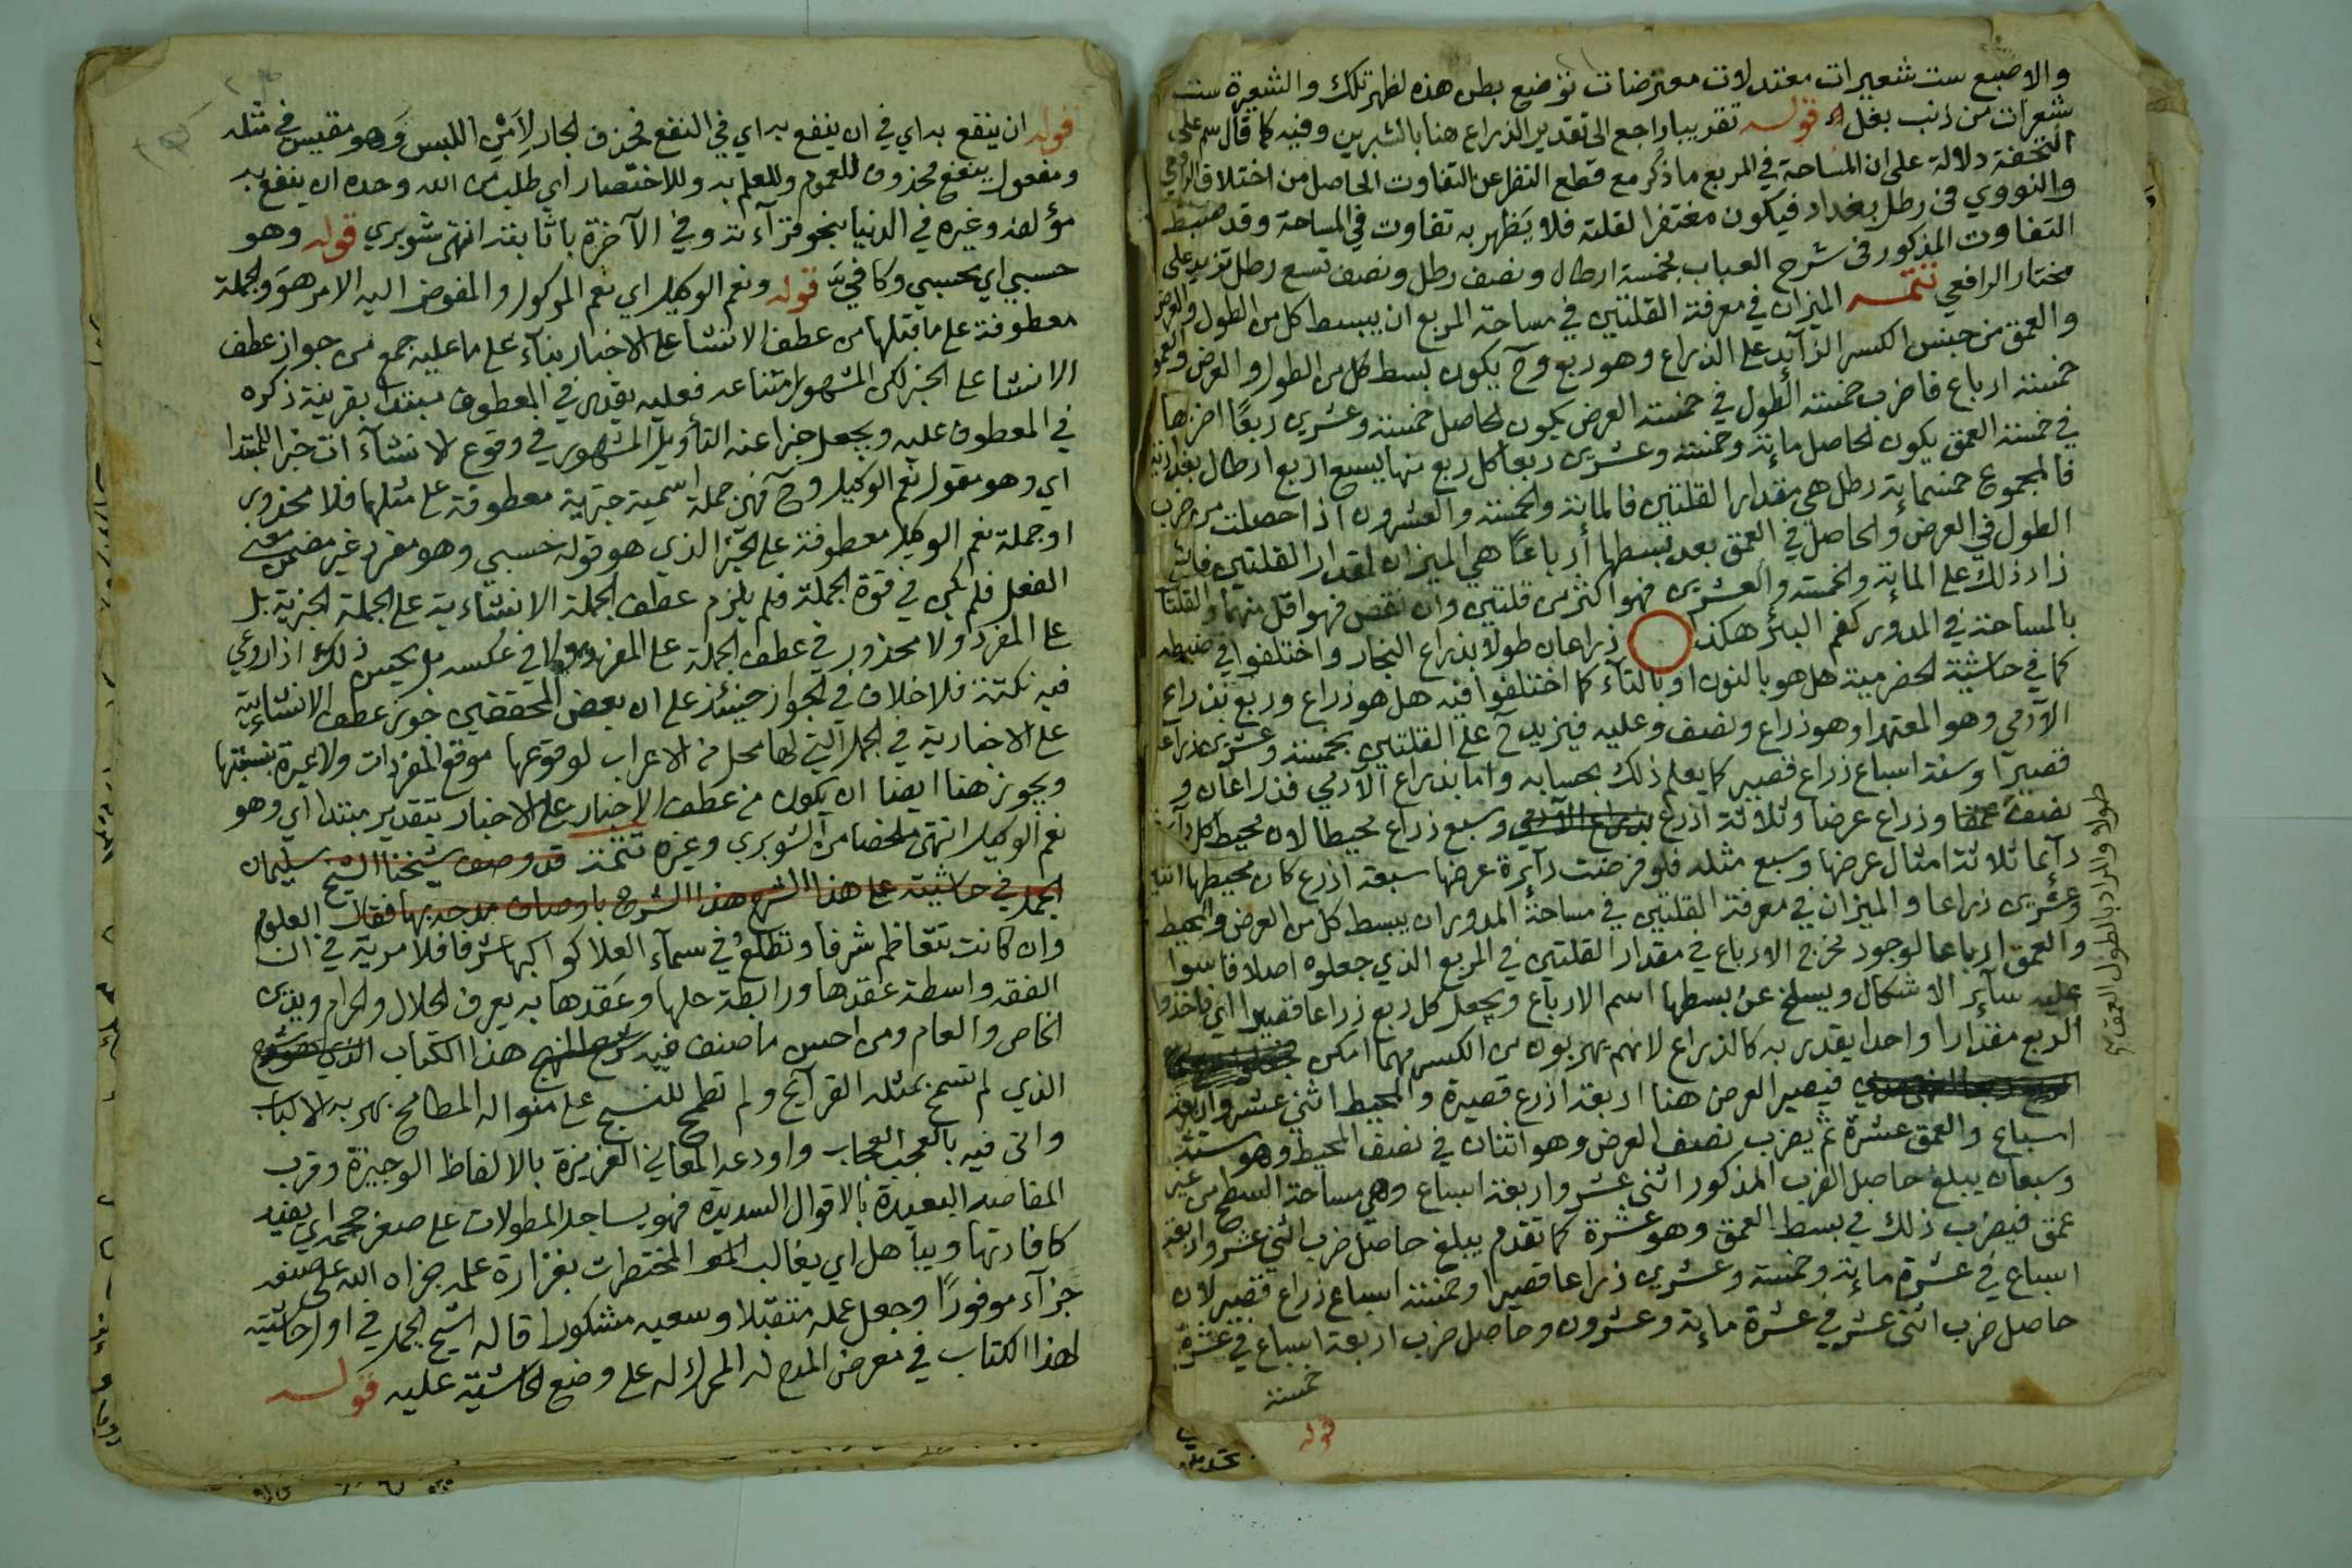 والاصبع ست شعيرات معتدلات معترضات توضع بطن هذه لظهر تلك والشعيرة ست
شعرات من ذنب بغل اه قوله تقريبا راجع الى تقدير الذراع هنا بالشبرين وفيه كما قال سم على
التحفة دلالة على ان المساحة في المربع ما ذكر مع قطع النظر عن التفاوت الحاصل من اختلاف الرافعي
والنووي في رطل بغداد فيكون مغتفرا لقلته فلا يظهر به تفاوت في المساحة وقد ضبط
التفاوت المذكور في شرح العباب بخمسة ارطال ونصف رطل ونصف تسع رطل تزيد على
مختار الرافعي تتمه الميزان في معرفة القلتين في مساحة المربع ان يبسط كل من الطول والعرض
والعمق من جنس الكسر الزآيد على الذراع وهو ربع وح يكون بسط كل من الطول والعرض والعمق
خمسة ارباع فاضرب خمسة الطول في خمسة العرض يكون الحاصل خمسة وعشرين ربعًا اضربها
في خمسة العمق يكون الحاصل ماية وخمسة وعشرين ربعا كل ربع منها يسع اربع ارطال بغدادية
فالمجموع خمسماية رطل هي مقدار القلتين فالماية والخمسة والعشرون اذا حصلت من ضرب
الطول في العرض والحاصل في العمق بعد بسطها أرباعًا هي الميزان لمقدار القلتين فان
زاد ذلك على الماية والخمسة والعشرين فهو اكثر من قلتين وان نقص فهو اقل منهما والقلتان
بالمساحة في المدور كفم البئر هكذا ذراعان طولا بذراع النجار واختلفوا في ضبطه
كما في حاشية الحضرمية هل هو بالنون او بالتآء كما اختلفوا فيه هل هو ذراع وربع بذراع
الآدمي وهو المعتمد او هو ذراع ونصف وعليه فيزيد ح على القلتين بخمسة وعشرين ذراعا
قصيرا وستة اسباع ذراع قصير كما يعلم ذلك بحسابه واما بذراع الآدمي فذراعان و
نصف عمقا وذراع عرضا وثلاثة اذرع بذراع الآدمي وسبع ذراع محيطا لان محيط كل دآيرة
دآيما ثلاثة امثال عرضها وسبع مثله فلو فرضت دآيرة عرضها سبعة اذرع كان محيطها اثنين
وعشرين ذراعا والميزان في معرفة القلتين في مساحة المدور ان يبسط كل من العرض والمحيط
والعمق ارباعا لوجود مخرج الارباع في مقدار القلتين في المربع الذي جعلوه اصلا فقاسوا
عليه سآير الاشكال ويسلخ عن بسطها اسم الارباع ويجعل كل ربع ذراعا قصيرا اي فاخذوا
الربع مقدارا واحدا يقدر به كالذراع لانهم يهربون من الكسر مهما امكن
فيصير العرض هنا اربعة اذرع قصيرة والمحيط اثني عشر واربعة
اسباع والعمق عشرة ثم يضرب نصف العرض وهو اثنان في نصف المحيط وهو ستة
وسبعان يبلغ حاصل الضرب المذكور اثني عشر واربعة اسباع وهي مساحة السطح من غير
عمق فيضرب ذلك في بسط العمق وهو عشرة كما تقدم يبلغ حاصل ضرب اثني عشر واربعة
اسباع في عشرة ماية وخمسة وعشرين ذراعا قصيرا وخمسة اسباع ذراع قصير لان
حاصل ضرب اثني عشر في عشرة ماية وعشرون وحاصل ضرب اربعة اسباع في عشرة
خمسة
طولا والمراد بالطول العمق
قوله ان ينفع به اي في ان ينفع به اي في النفع فحذف الجار لِأَمْنِ اللبس وَهو مقيس في مثله
ومفعول ينفع محذوف للعموم وللعلم به وللاختصار اي طلب من الله وحده ان ينفع به
مؤلفه وغيره في الدنيا بنحو قرآءته وفي الآخرة باثابته انتهى شوبري قوله وهو
حسبي اي محسبي وكافيَّ قوله ونعم الوكيل اي نعم الموكول والمفوض اليه الامر هوَ والجملة
معطوفة على ما قبلها من عطف الانشا على الاخبار بنآء على ما عليه جمع من جواز عطف
الانشا على الخبر لكن المشهور امتناعه فعليه يقدر في المعطوف مبتدا بقرينة ذكره
في المعطوف عليه ويجعل خبرا عنه التأويل المشهور في وقوع الانشآء ات خبر المبتدا
اي وهو مقول نعم الوكيل وح فهي جملة اسمية خبرية معطوفة على مثلها فلا محذور
او جملة نعم الوكيل معطوفة على الخبر الذي هو قوله حسبي وهو مفرد غير مضمن معنى
الفعل فلم يكن في قوة الجملة فلم يلزم عطف الجملة الانشاءية على الجملة الخبرية بل
على المفرد ولا محذور في عطف الجملة على المفرد ولا في عكسه بل يحسن ذلك اذا روعي
فيه نكتة فلا خلاف في الجواز حينئذ على ان بعض المحققين جوز عطف الانشائية
على الاخبارية في الجمل التي لها محل من الاعراب لوقوعها موقع المفردات ولا عبرة بنسبتها
ويجوز هنا ايضا ان يكون من عطف الاخبار على الاخبار بتقدير مبتدا اي وهو
نعم الوكيل انتهى ملخصا من الشوبري وغيره تتمة قد وصف شيخنا الشيخ سليمان
الجمل في حاشيته على هذا الشرح هذا الشرح باوصاف مدحه بها فقال العلوم
وان كانت تتعاظم شرفا وتطلع في سمآء العلا كواكبها شرفا فلا مرية في ان
الفقه واسطة عقدها ورابطة حلها وعَقدها به يعرف الحلال والحرام ويدين
الخاص والعام ومن احسن ما صنف فيه شرح المنهج هذا الكتاب الذي هو شرح
الذي لم تسمح بمثله القرآيح ولم تطمح للنسج على منواله المطامح بهر به الالباب
واتى فيه بالعجب العجاب واودعه المعاني الغزيزة بالالفاظ الوجيزة وقرب
المقاصد البعيدة بالاقوال السديدة فهو يساجل المطولات على صغر حجمه اي يفيد
كافادتها ويباهل اي يغالب المختصرات بغزارة علمه جزاه الله على صنعه
جزآء موفورًا وجعل عمله متقبلا وسعيه مشكورا قاله الشيخ الجمل في اول حاشيته
لهذا الكتاب في معرض المدح له المحرك له على وضع الحاشية عليه قوله